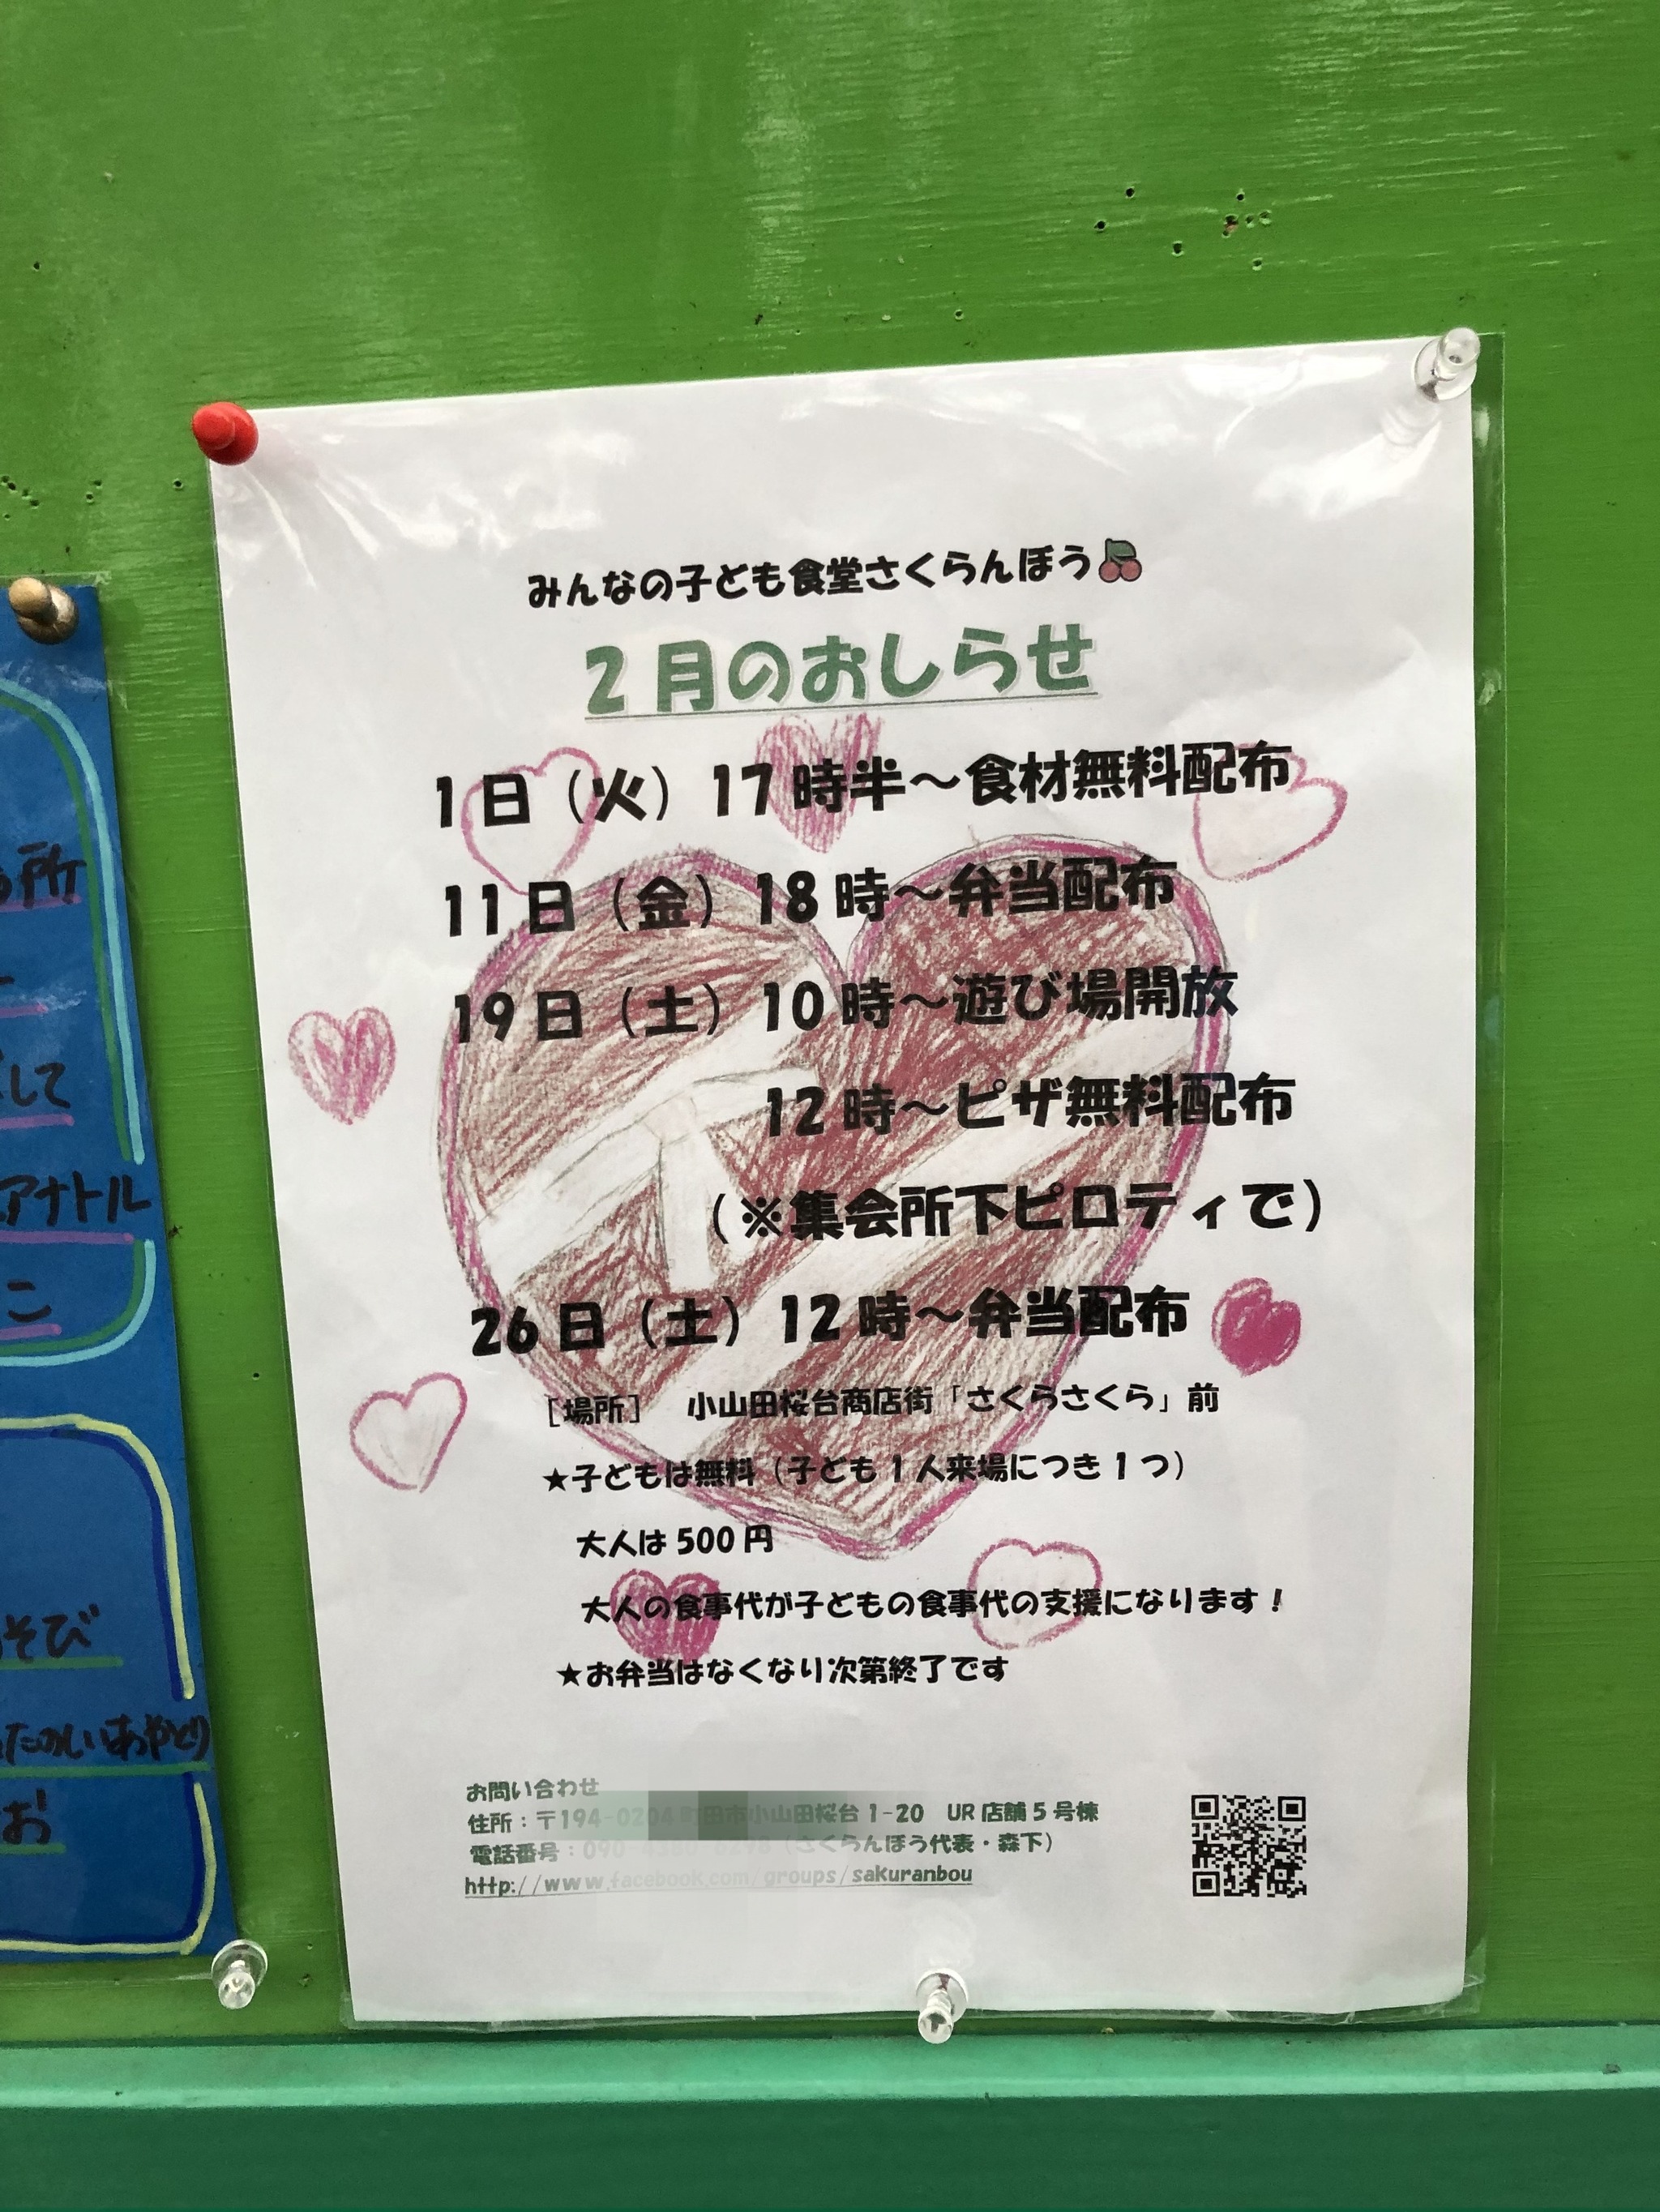 みんなの子ども食堂さくらんぼう
2月のおしらせ
1日（火）17時半～食材無料配布
11日（金）18時～弁当配布
19日（土）10時～遊び場開放
12時～ピザ無料配布
（※集会所下ピロティで）
26日（土）12時～弁当配布
［場所］ 小山田桜台商店街「さくらさくら」前
★子どもは無料（子ども1人来場につき1つ）
大人は500円
大人の食事代が子どもの食事代の支援になります！
★お弁当はなくなり次第終了です
お問い合わせ
住所：〒194-0204 町田市小山田桜台1-20 UR店舗5号棟
電話番号：090 （さくらんぼう代表・森下）
http://www.facebook.com/groups/sakuranbou
所
して
アナトル
こ
そび
たのしいあやとり
お